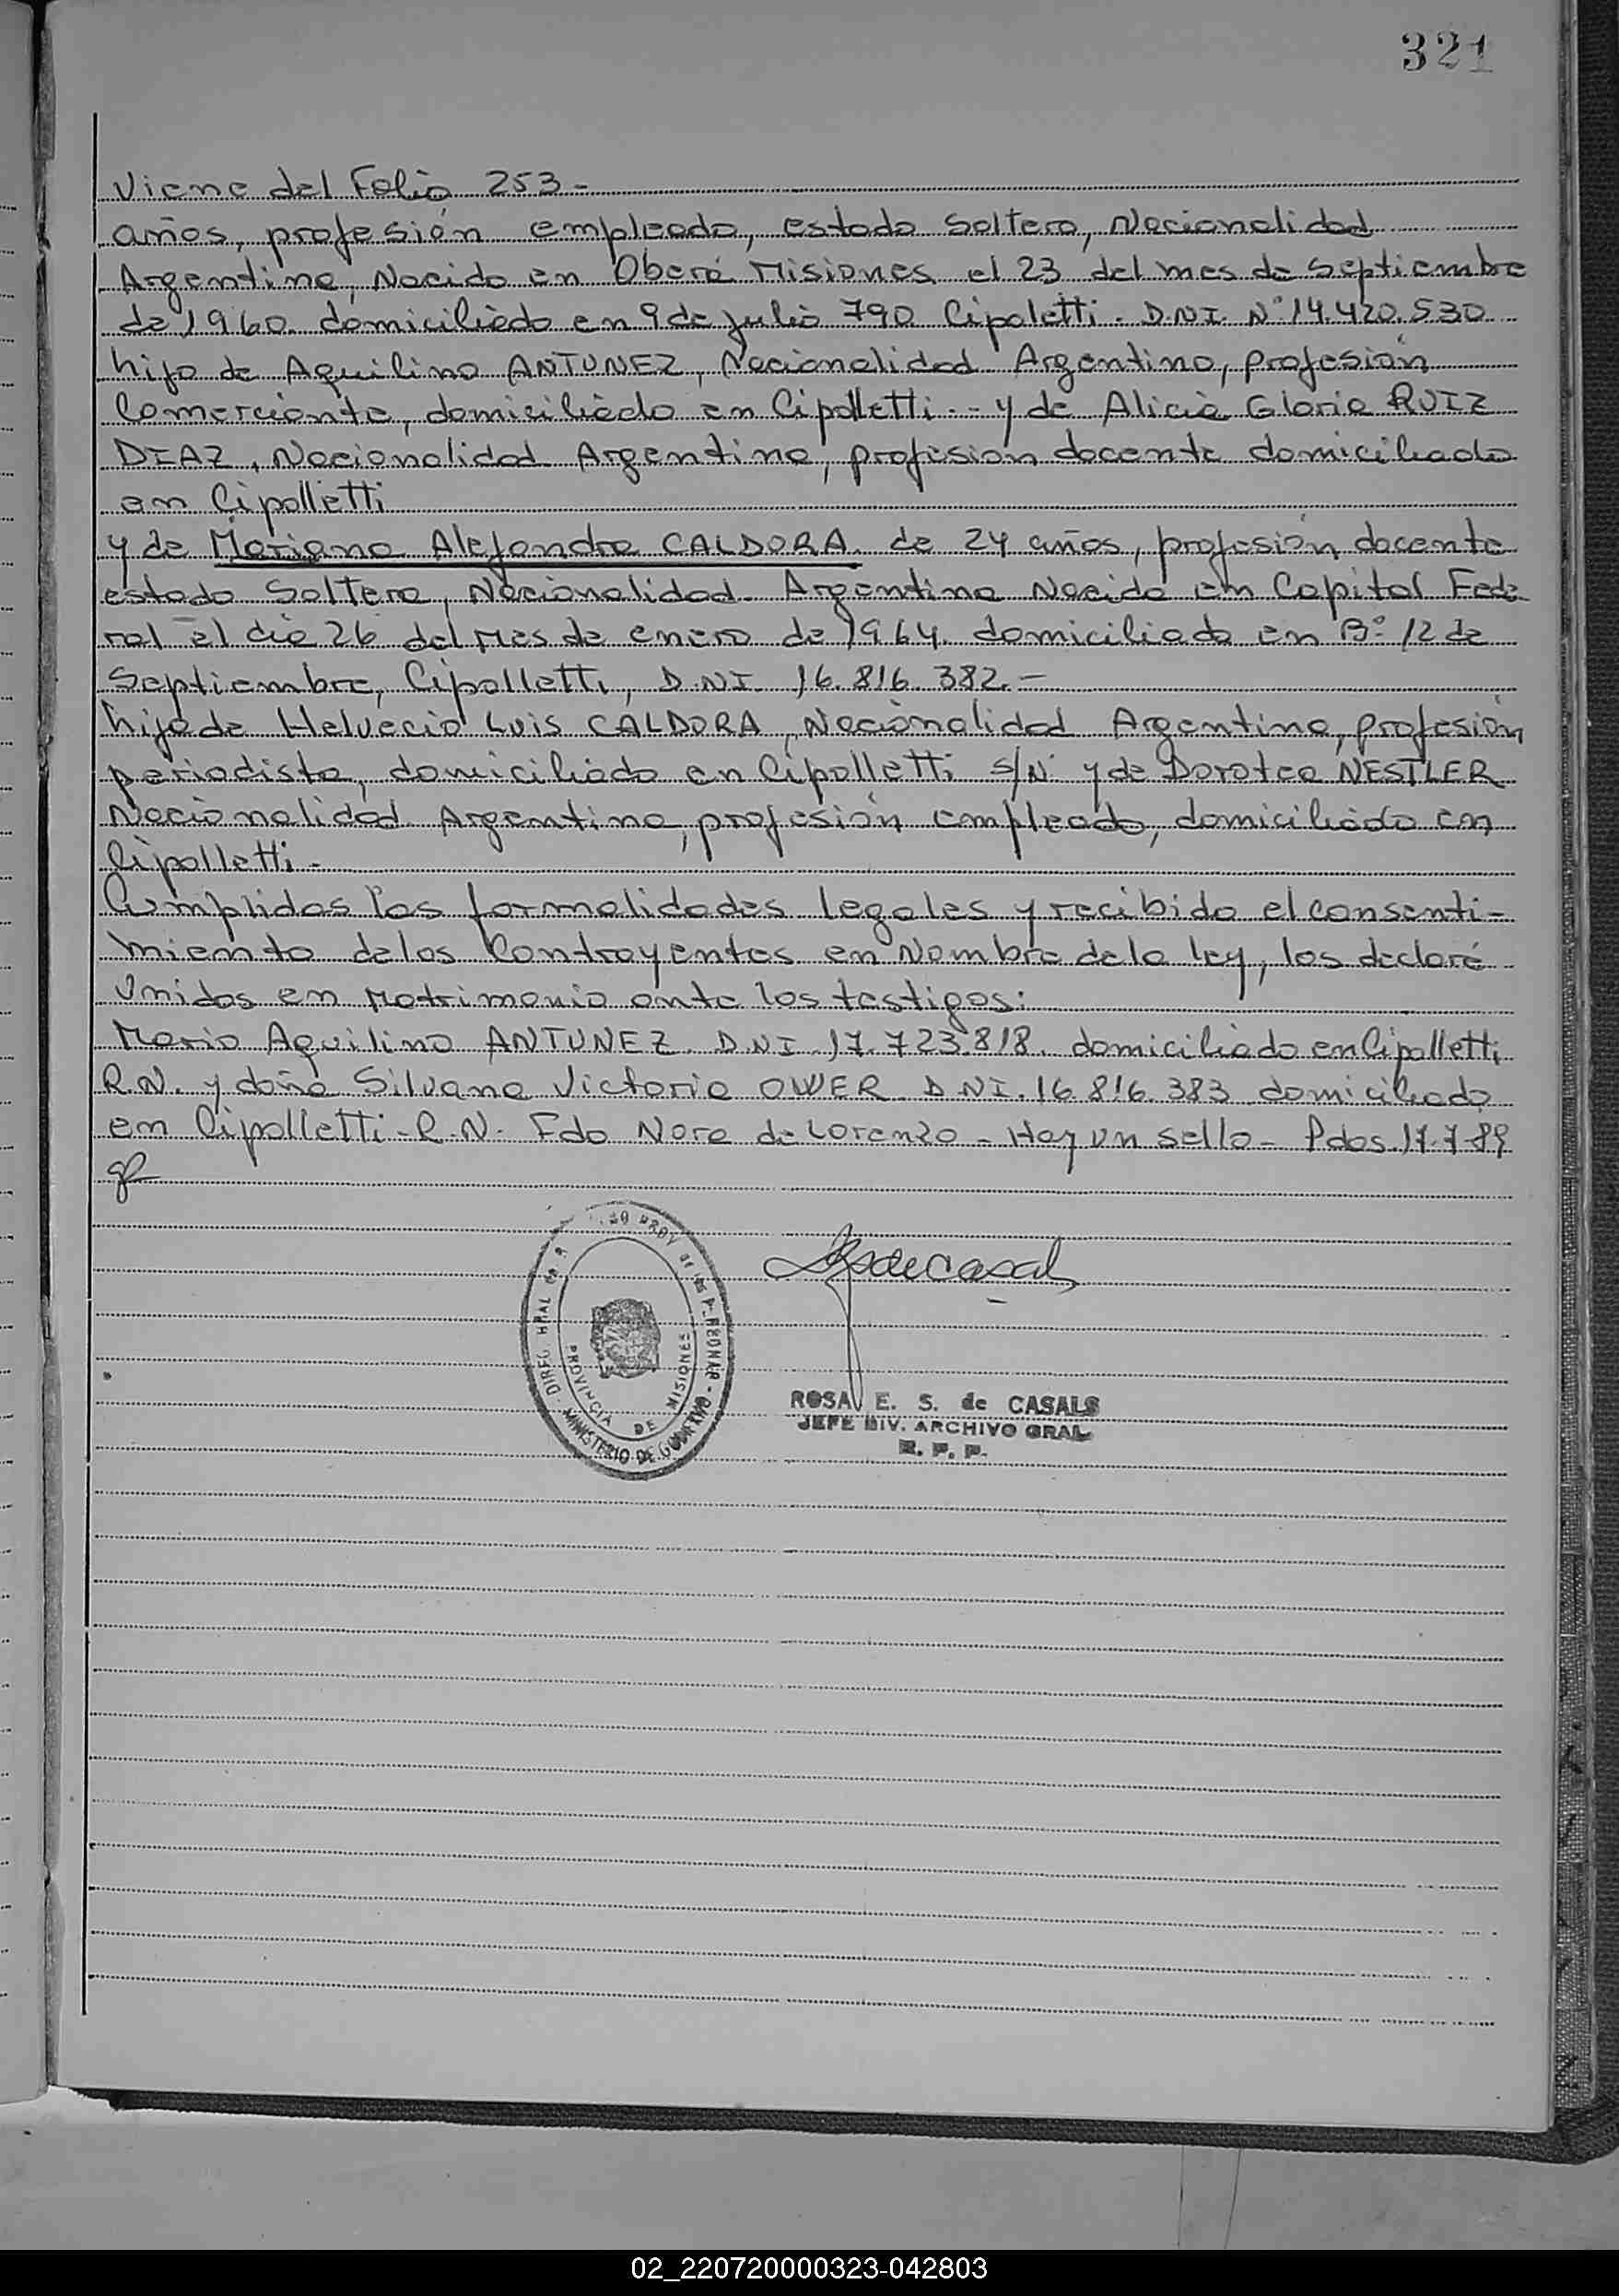 321
Viene del Folio 253-
años, profesión empleado, estado Soltero, Nacionalidad
Argentina, Nacido en Oberá Misiones el 23 del mes de Septiembre
de 1960. domiciliado en 9 de Julio 790 Cipoletti. D.N.I. Nº 14.420.530
hijo de Aquilino ANTUNEZ, Nacionalidad Argentino, profesión
Comerciante, domiciliado en Cipolletti.- y de Alicia Gloria RUIZ
DIAZ, Nacionalidad Argentina, profesión docente domiciliada
en Cipolletti
y de Mariana Alejandra CALDORA. de 24 años, profesión docente
estado Soltera, Nacionalidad Argentina Nacida en Capital Fede
ral el día 26 del Mes de enero de 1964. domiciliada en Bº 12 de
Septiembre, Cipolletti, D.N.I. 16.816.382.-
hija de Helvecio Luis CALDORA, Nacionalidad Argentino, profesión
periodista, domiciliado en Cipolletti S/N y de Dorotea NESTLER
Nacionalidad Argentina, profesión empleada, domiciliada en
Cipolletti.-
Cumplidas las formalidades legales y recibido el consenti-
miento de los Contrayentes en Nombre de la ley, los declaré
Unidos en Matrimonio ante los testigos:
Mario Aquilino ANTUNEZ. D.N.I. 17.723.818. domiciliado en Cipolletti
R.N. y doña Silvana Victoria OWER D.N.I. 16.816.383 domiciliada
en Cipolletti-R.N. Fdo Nora de Lorenzo - Hay un sello - Pdas. 17-7-89
DIREC. GRAL de R. PROV de las P.
PROVINCIA DE MISIONES
MINISTERIO DE GOBIERNO
ROSA E. S. de CASALS
JEFE DIV. ARCHIVO GRAL
R. P. P.
02_220720000323-042803